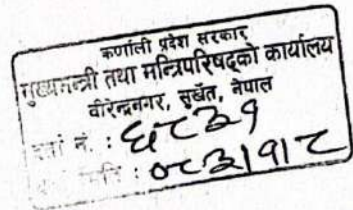 कर्णाली प्रदेश सरकार
मुख्यमन्त्री तथा मन्त्रिपरिषद्को कार्यालय
वीरेन्द्रनगर, सुर्खेत, नेपाल
दर्ता नं. : ६८३१
मिति : ०८३।१।८